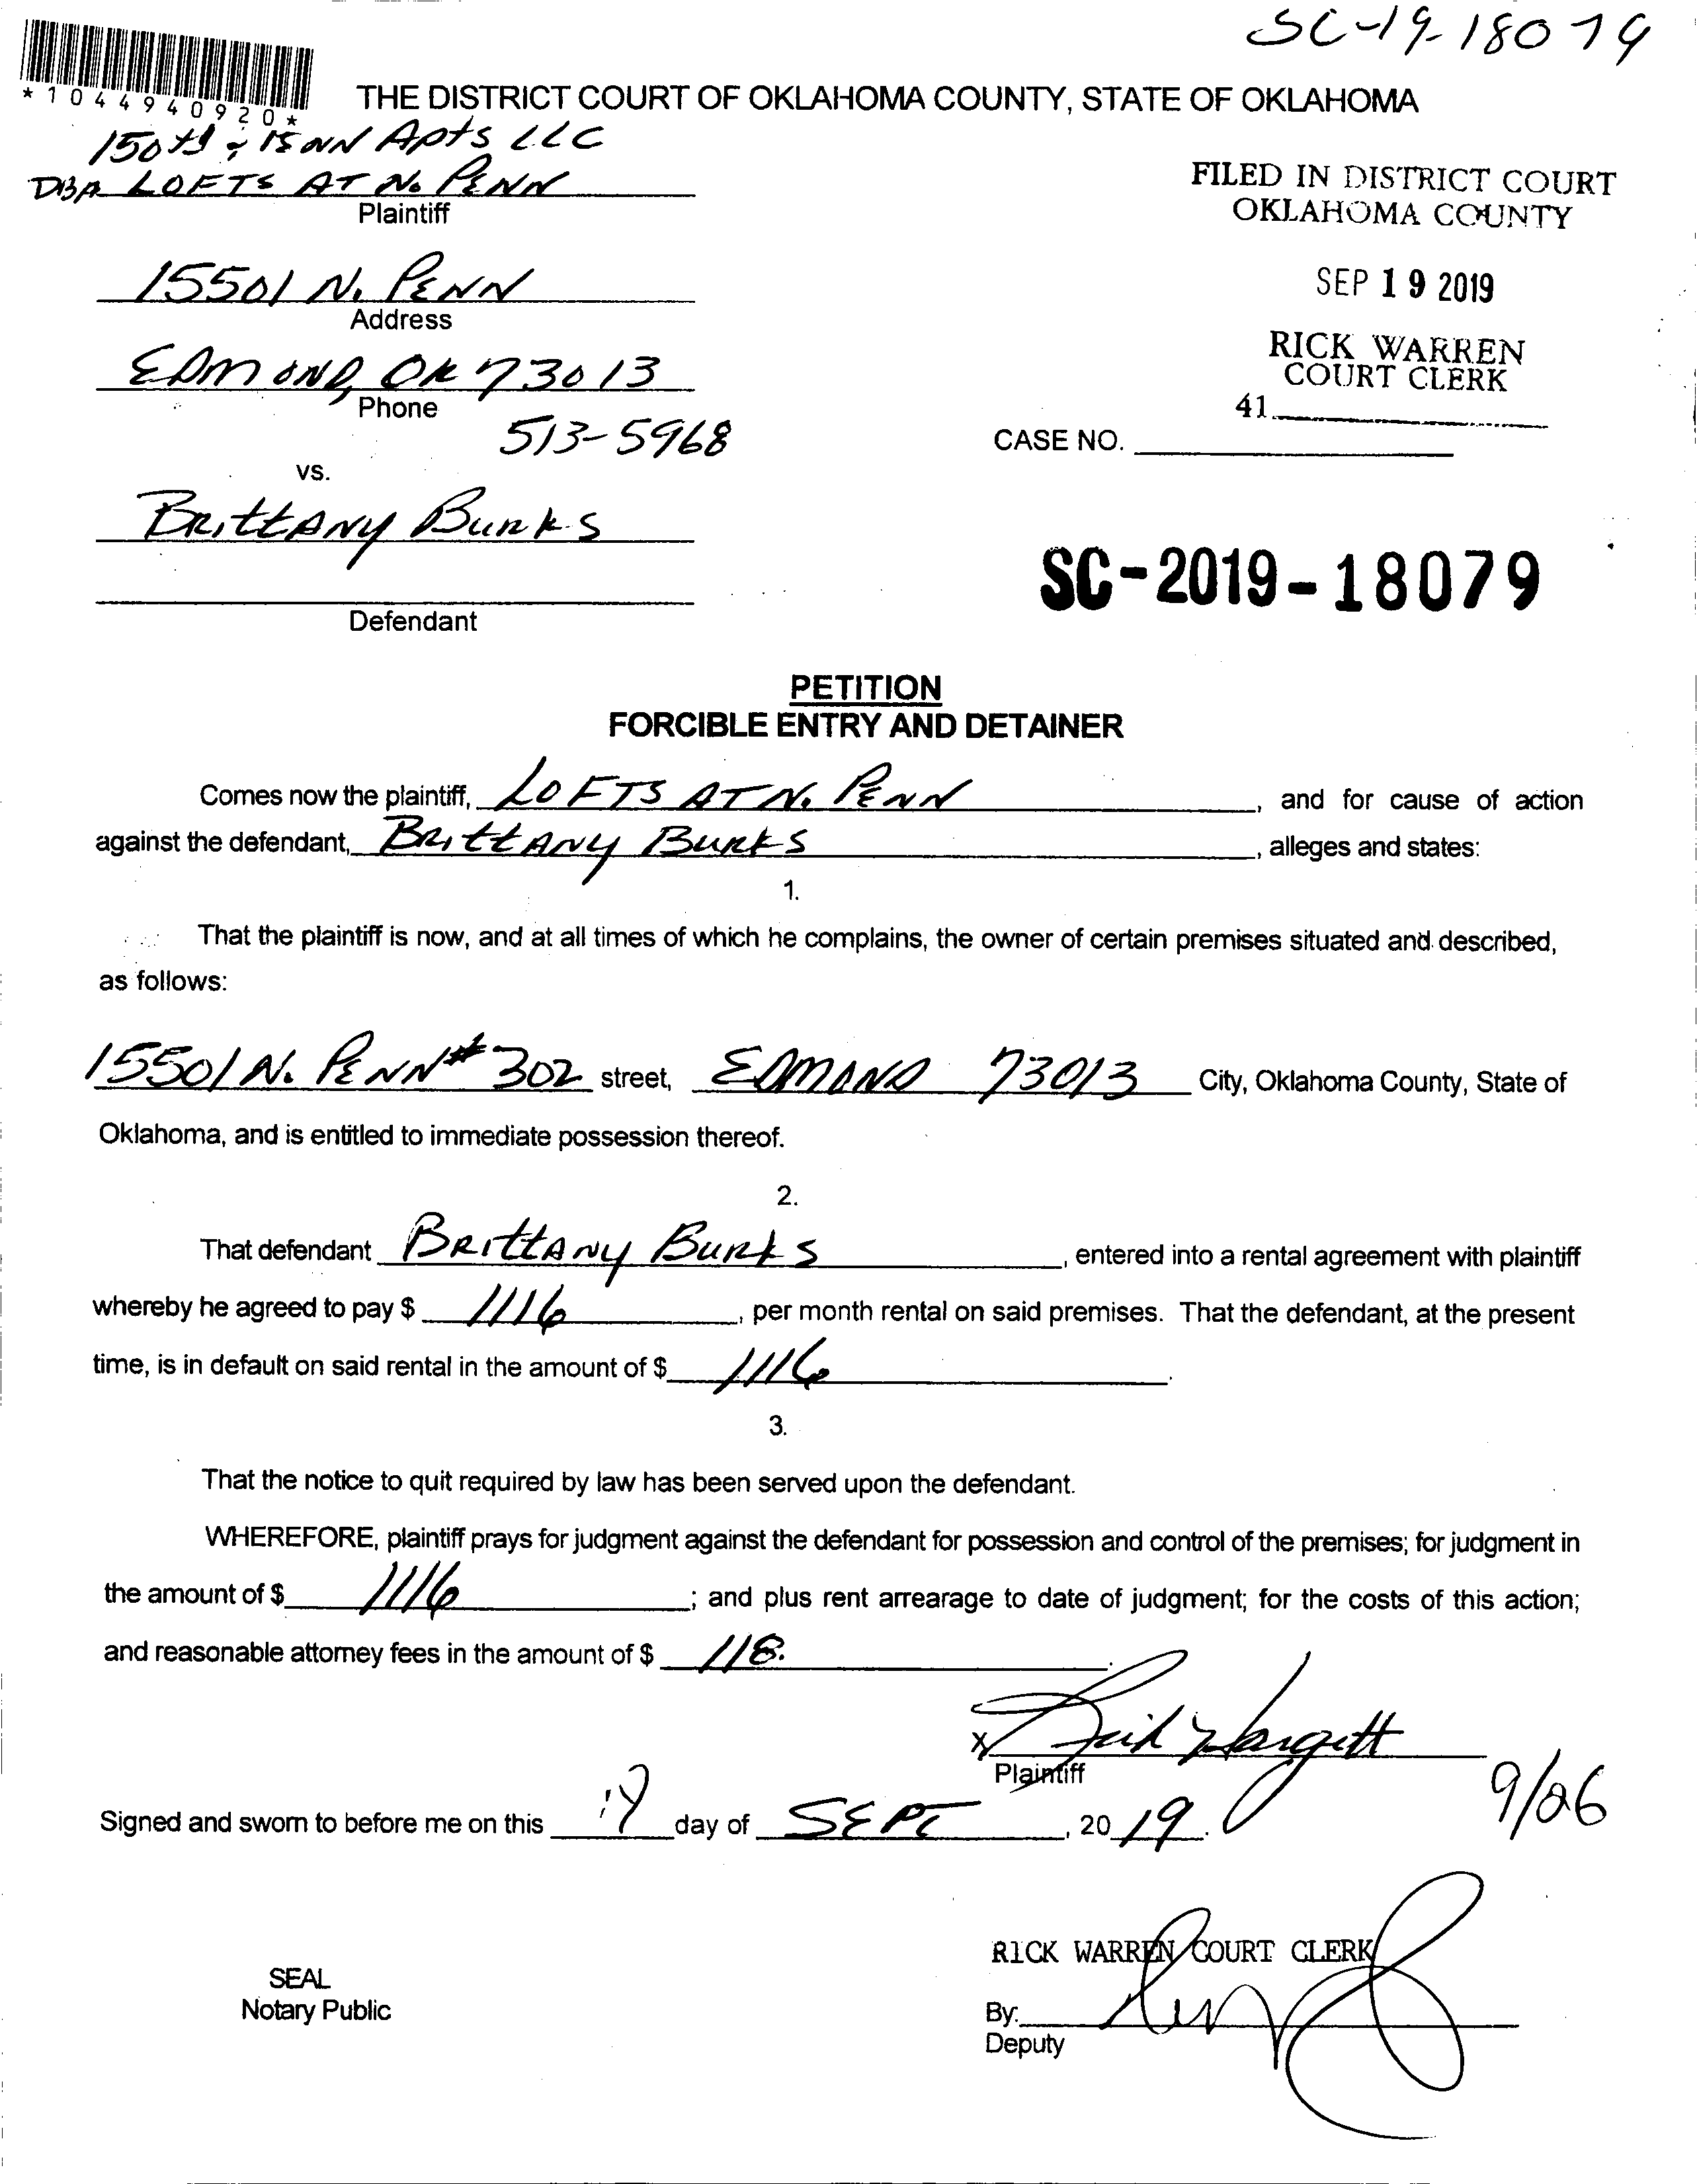 SC-19-18079
*1044940920*
THE DISTRICT COURT OF OKLAHOMA COUNTY, STATE OF OKLAHOMA
150th & PENN Apts LLC
DBA LOFTS AT N. PENN
Plaintiff
FILED IN DISTRICT COURT
OKLAHOMA COUNTY
15501 N. PENN
Address
SEP 19 2019
EDMOND, OK 73013
Phone
RICK WARREN
COURT CLERK
41
513-5968
CASE NO.
vs.
BRITTANY BURKS
Defendant
SC-2019-18079
PETITION
FORCIBLE ENTRY AND DETAINER
Comes now the plaintiff, LOFTS AT N. PENN, and for cause of action
against the defendant, BRITTANY BURKS, alleges and states:
1.
That the plaintiff is now, and at all times of which he complains, the owner of certain premises situated and described,
as follows:
15501 N. PENN #302 street, EDMOND 73013 City, Oklahoma County, State of
Oklahoma, and is entitled to immediate possession thereof.
2.
That defendant BRITTANY BURKS, entered into a rental agreement with plaintiff
whereby he agreed to pay $ 1116, per month rental on said premises. That the defendant, at the present
time, is in default on said rental in the amount of $ 1116.
3.
That the notice to quit required by law has been served upon the defendant.
WHEREFORE, plaintiff prays for judgment against the defendant for possession and control of the premises; for judgment in
the amount of $ 1116; and plus rent arrearage to date of judgment; for the costs of this action;
and reasonable attorney fees in the amount of $ 118.
X Hargett
Plaintiff
9/26
Signed and sworn to before me on this day of SEPT, 2019.
RICK WARREN COURT CLERK
SEAL
Notary Public
By:
Deputy